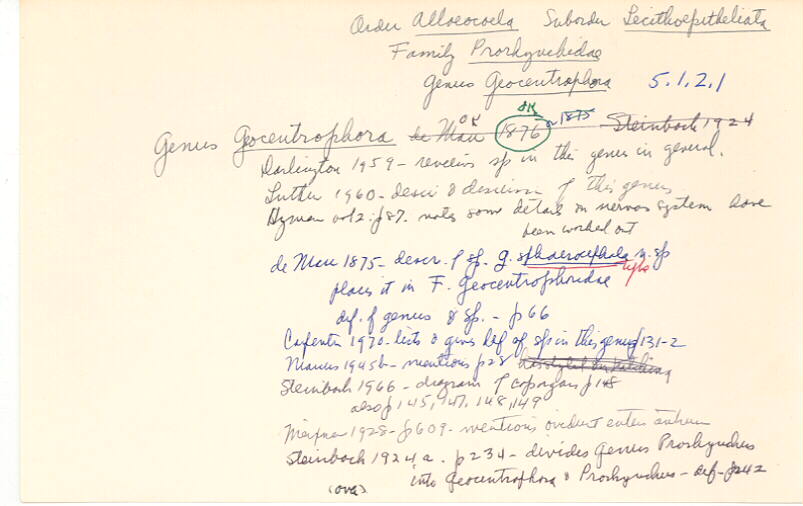 Order Alloeocoela Suborder Lecithoepitheliata
Family Prorhynchidae
Genus Geocentrophora 5.1.2.1
OK
Genus Geocentrophora de Man OK 1876 1875 Steinbock 1924
Darlington 1959 - reviews sp in this genus in general.
Luther 1960 - descr & discussion of this genus
Hyman vol 2. p87. notes some details on nervous system have
been worked out
de Man 1875 - descr. of sp. g. sphaerocephala n. sp
type
places it in F. Geocentrophoridae
def. of genus & sp. - p66
Carpenter 1970 - lists & gives def of sp in this genus p131-2
Marcus 1945b - mentions p28
Steinbock 1966 - diagram of cop organs p148
also p145, 147, 148, 149
Meixner 1928 - p609 - mentions oviduct enters antrum
Steinbock 1924a. p234 - divides Genus Prorhynchus
into Geocentrophora & Prorhynchus - def - p242
(over)